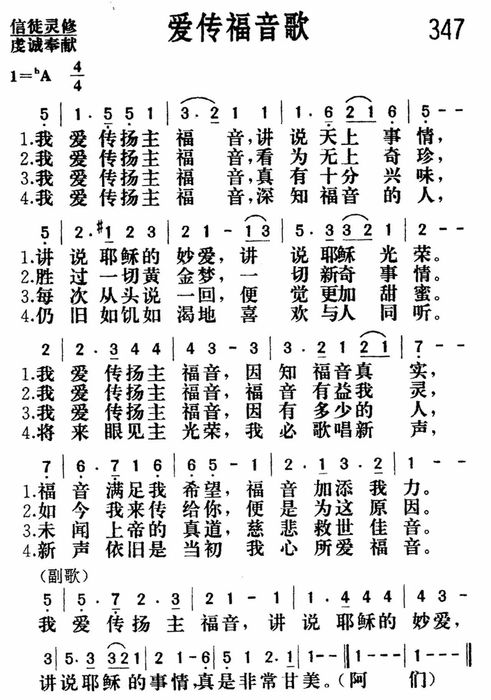 信徒灵修
虔诚奉献
爱传福音歌
347
1=ᵇA 4/4
5 | 1 . 5 5 1 | 3 . 2 1 1 | 1 . 6 2 1 6 | 5 - -
1.我 爱 传 扬 主 福 音,讲 说 天 上 事 情,
2.我 爱 传 扬 主 福 音,看 为 无 上 奇 珍,
3.我 爱 传 扬 主 福 音,真 有 十 分 兴 味,
4.我 爱 传 扬 主 福 音,深 知 福 音 的 人,
5 | 2 . #1 2 3 | 2 1 - 1 3 | 5 . 1 3 2 | 1 - -
1.讲 说 耶 稣 的 妙 爱, 讲 说 耶稣 光 荣。
2.胜 过 一 切 黄 金 梦, 一 切 新奇 事 情。
3.每 次 从 头 说 一 回, 便 觉 更加 甜 蜜。
4.仍 旧 如 饥 如 渴 地 喜 欢 与人 同 听。
2 | 2 . 3 4 4 | 4 3 - 3 | 3 . 2 1 2 1 | 7 - -
1.我 爱 传 扬 主 福 音, 因 知 福 音 真 实,
2.我 爱 传 扬 主 福 音, 福 音 有 益 我 灵,
3.我 爱 传 扬 主 福 音, 因 有 多 少 的 人,
4.将 来 眼 见 主 光 荣, 我 必 歌 唱 新 声,
7 | 6 . 7 1 6 | 6 5 - 1 | 2 . 2 3 2 | 1 - -
1.福 音 满 足 我 希 望, 福 音 加 添 我 力。
2.如 今 我 来 传 给 你, 便 是 为 这 原 因。
3.未 闻 上 帝 的 真 道, 慈 悲 救 世 佳 音。
4.新 声 依 旧 是 当 初 我 心 所 爱 福 音。
(副歌)
5 | 5 . 7 2 . 3 | 2 1 - 1 | 1 . 4 4 . 5 | 4 3 -
我 爱 传 扬 主 福 音, 讲 说 耶 稣 的 妙 爱,
3 | 5 . 3 3 2 1 | 2 1 - 6 | 5 1 3 . 2 | 1 - - | 1 - | 1 - ‖
讲 说 耶 稣 的 事 情,真 是 非 常 甘 美。(阿 们)